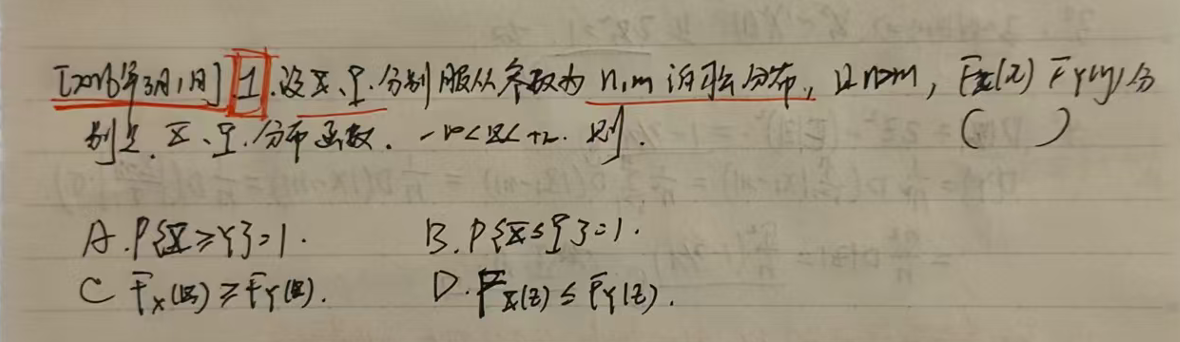 [2026年3月1日] 1. 设X、Y.分别服从参数为 n,m 泊松分布, 且n>m, Fx(z) FY(y)分
别是.X、Y.分布函数. -∞<z<+∞. 则. ( )
A.P{X≥Y}=1. B.P{X≤Y}=1.
C Fx(z)≥FY(z). D.Fx(z)≤FY(z).